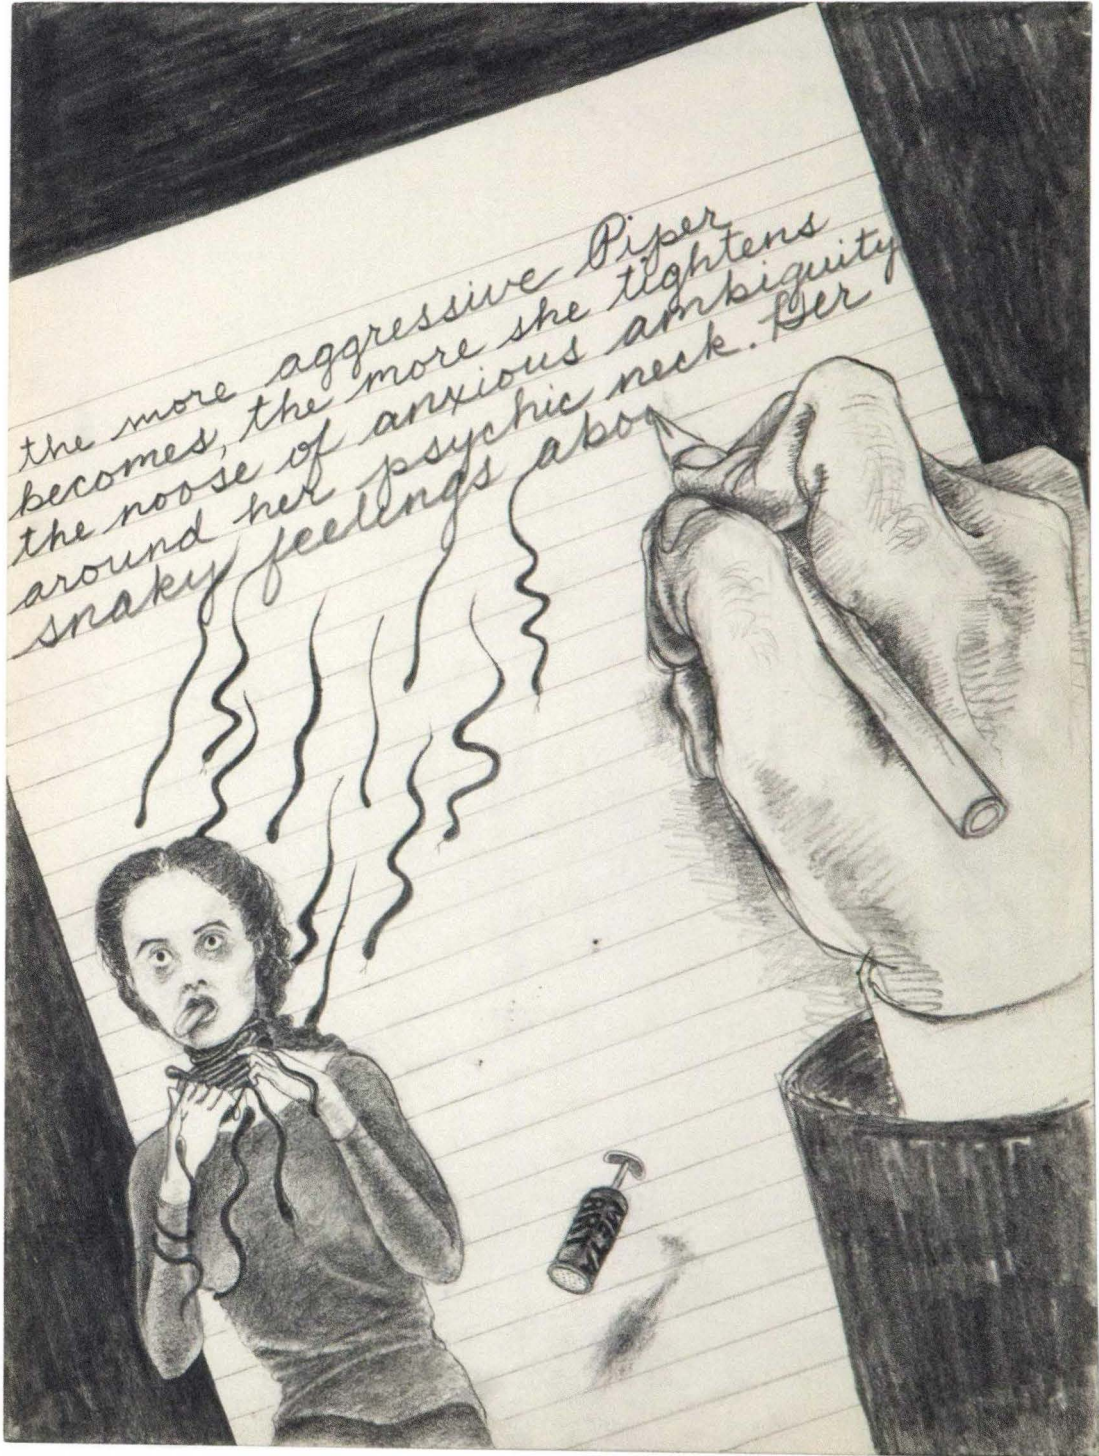 the more aggressive Piper
becomes, the more she tightens
the noose of anxious ambiguity
around her psychic neck. Her
snaky feelings abou